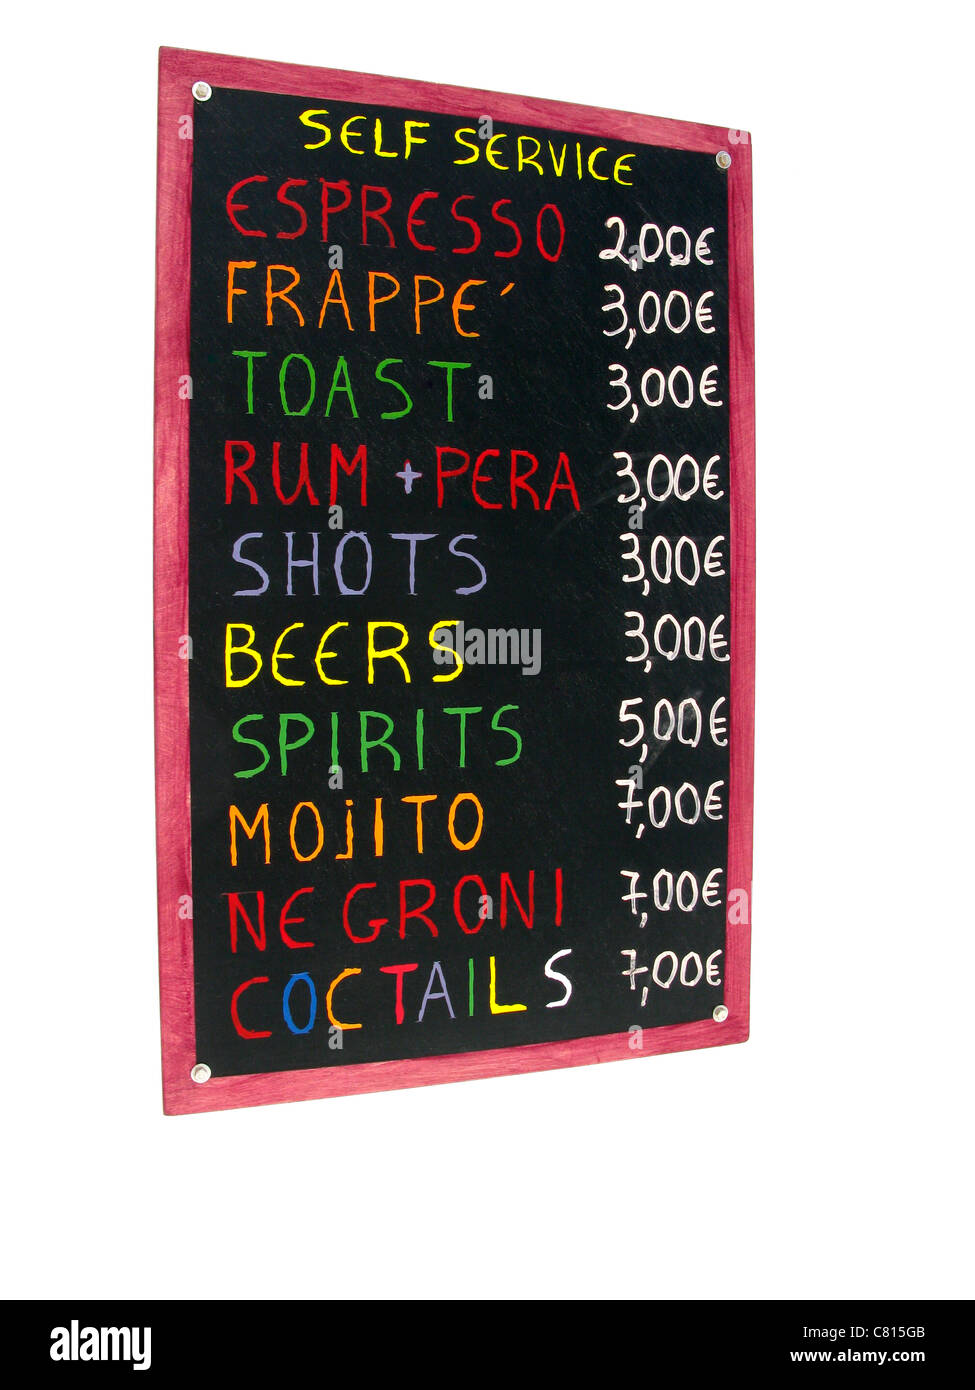 SELF SERVICE
ESPRESSO 2,00€
FRAPPE´ 3,00€
TOAST 3,00€
RUM + PERA 3,00€
SHOTS 3,00€
BEERS 3,00€
SPIRITS 5,00€
MOjITO 7,00€
NEGRONI 7,00€
COCTAILS 7,00€
a alamy
a
alamy
Image ID: C815GB
www.alamy.com